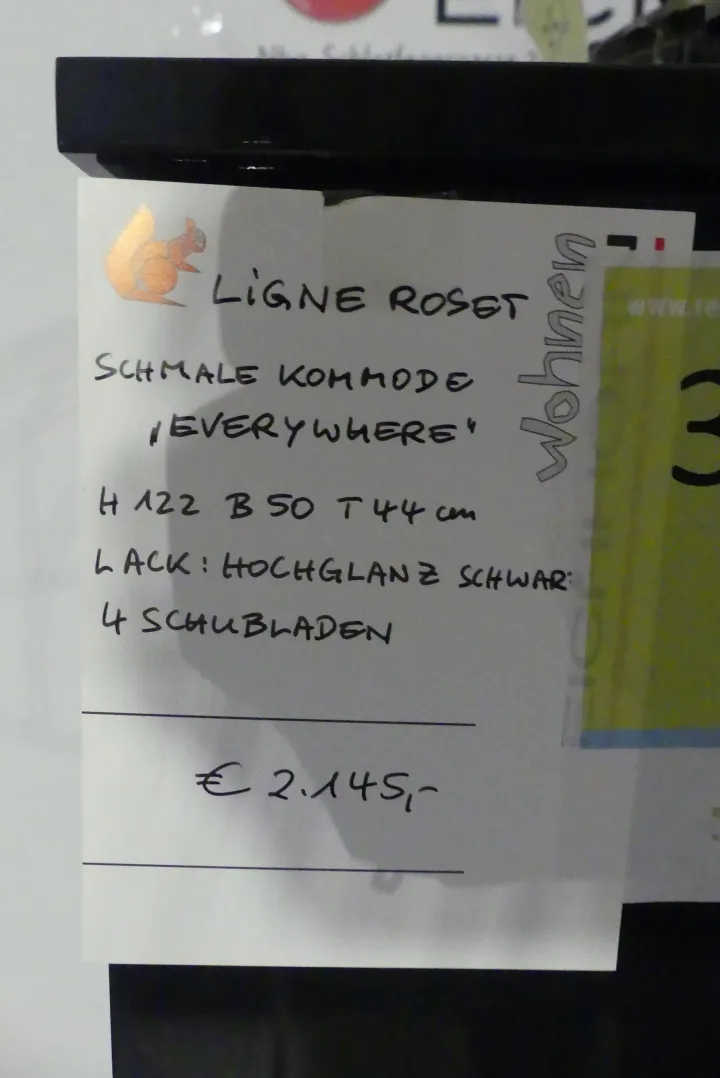 LiGNE ROSET
SCHMALE KOMMODE
„EVERYWHERE"
H 122 B 50 T 44 cm
LACK: HOCHGLANZ SCHWAR
4 SCHUBLADEN
€ 2.145,-
Wohnen
www.re
3